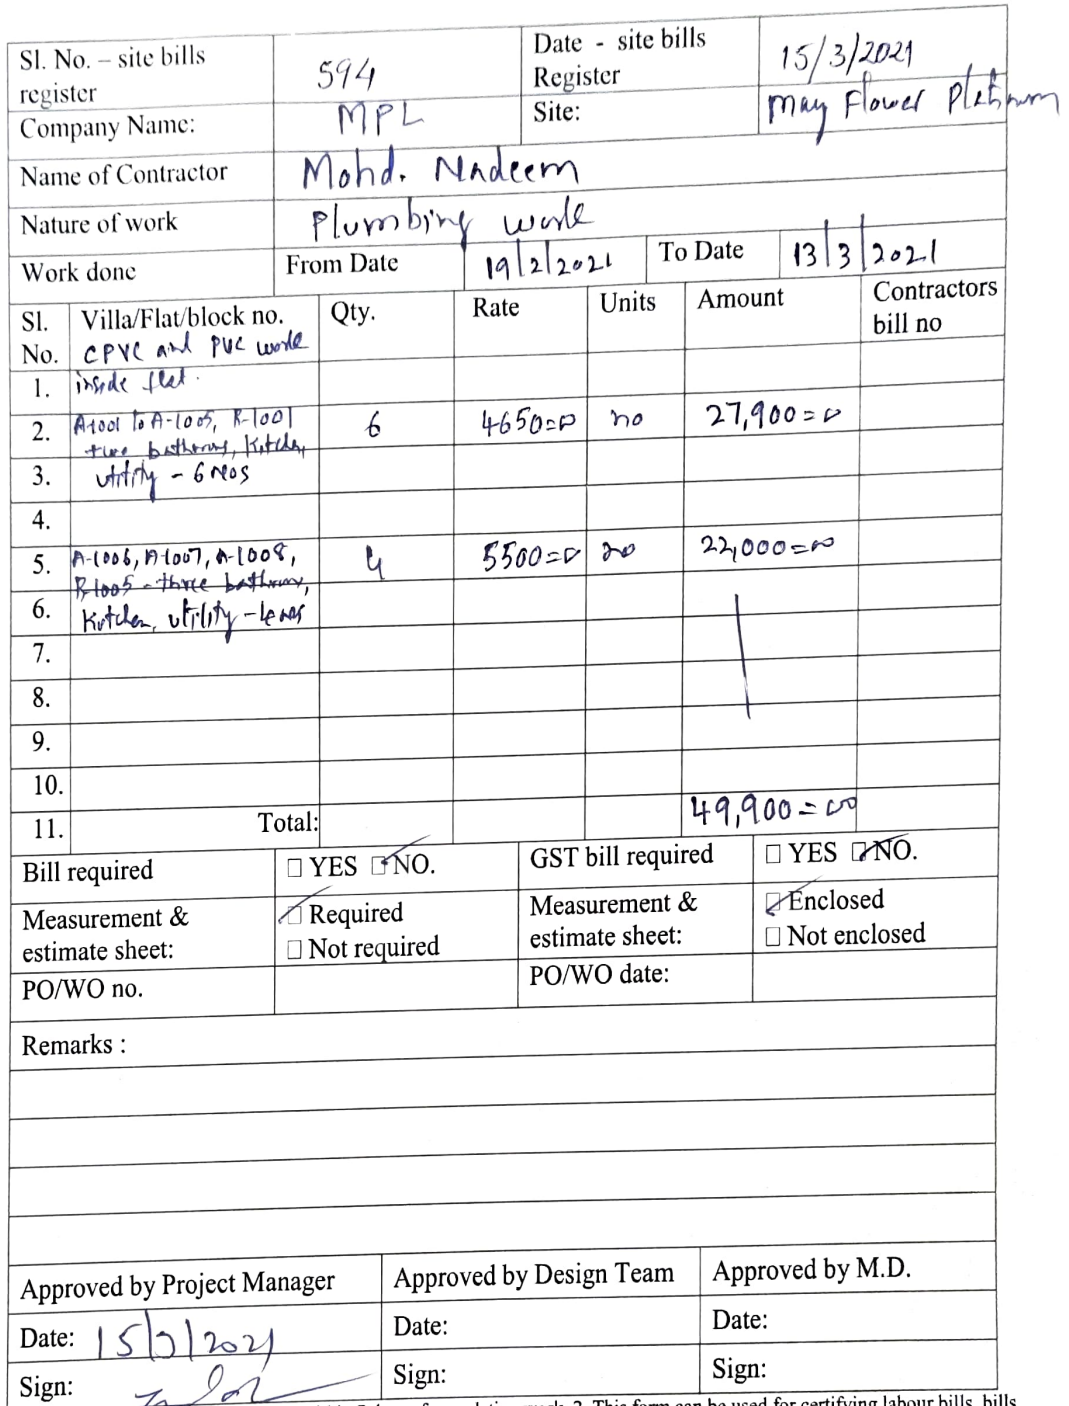 Sl. No. – site bills register 594 Date - site bills Register 15/3/2021
Company Name: MPL Site: May Flower Platinum
Name of Contractor Mohd. Nadeem
Nature of work Plumbing work
Work done From Date 19/2/2021 To Date 13/3/2021
Sl. No. Villa/Flat/block no. Qty. Rate Units Amount Contractors bill no
CPVC and PVC work
1. inside flat.
2. A-1001 to A-1005, B-1001 6 4650=00 no 27,900=00
two bathrooms, Kitchen,
3. utility - 6 nos
4.
5. A-1006, A-1007, A-1008, 4 5500=00 no 22,000=00
B-1005 - three bathrooms,
6. Kitchen, utility - 4 nos
7.
8.
9.
10.
11. Total: 49,900=00
Bill required □ YES □ NO. GST bill required □ YES □ NO.
Measurement & estimate sheet: □ Required Measurement & estimate sheet: □ Enclosed
□ Not required □ Not enclosed
PO/WO no. PO/WO date:
Remarks :
Approved by Project Manager Approved by Design Team Approved by M.D.
Date: 15/3/2021 Date: Date:
Sign: Sign: Sign:
2. This form can be used for certifying labour bills, bills